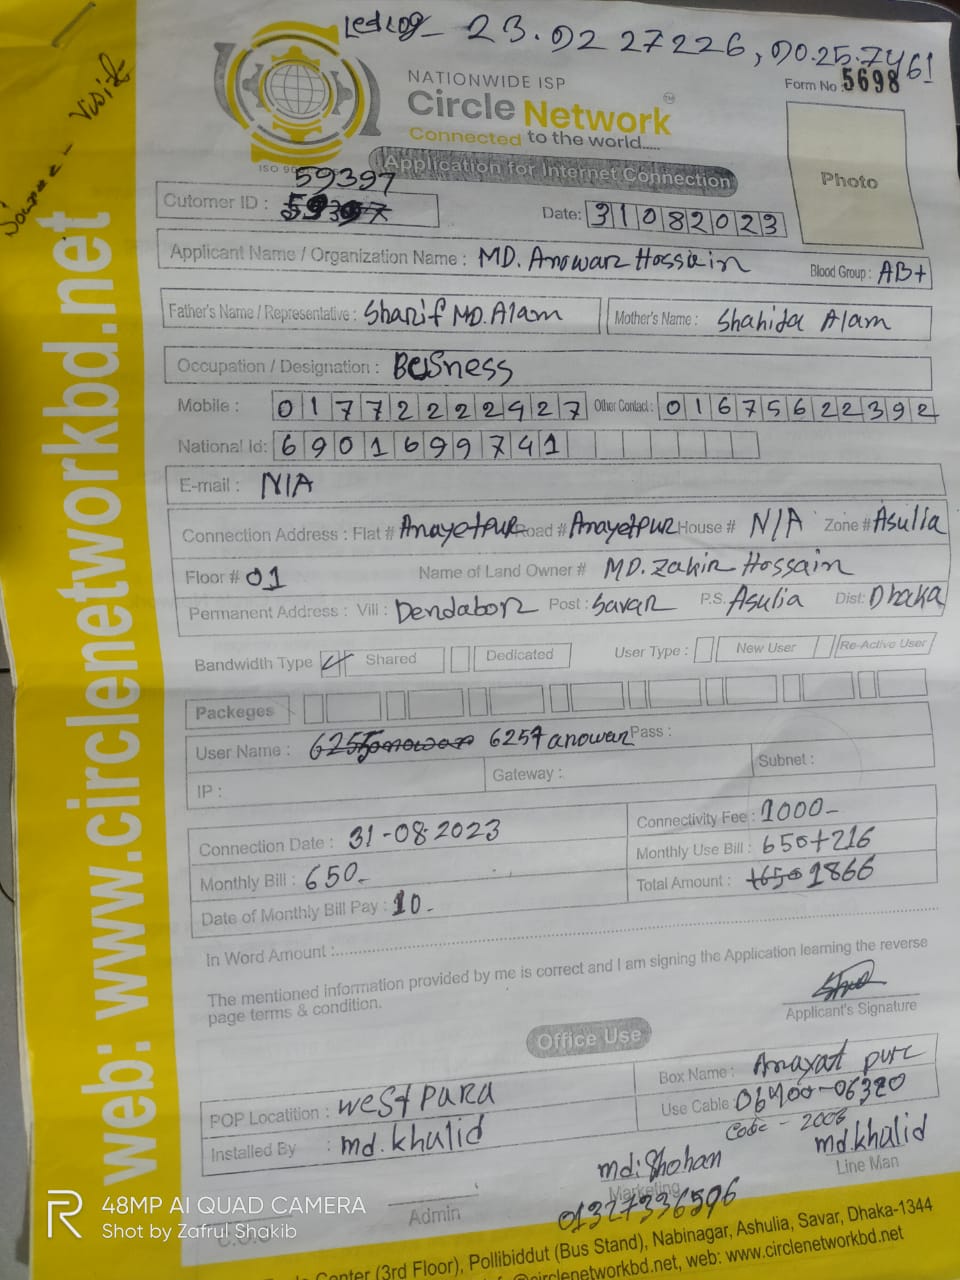 23.92 27226, 90.25.7461
NATIONWIDE ISP
Circle Network™
Connected to the world.....
Form No : 5698
Application for Internet Connection
Photo
59397
Cutomer ID :
Date: 31082023
Applicant Name / Organization Name : MD. Anowar Hossain Blood Group : AB+
Father's Name / Representative : Sharif MD. Alam Mother's Name : Shahida Alam
Occupation / Designation : Business
Mobile : 01772222927 Other Contact : 01675622392
National Id: 6901699741
E-mail : N/A
Connection Address : Flat # Anayetpur Road # Anayetpur House # N/A Zone # Asulia
Floor # 01 Name of Land Owner # MD. Zakir Hossain
Permanent Address : Vill : Dendabor Post : Savar P.S. Asulia Dist: Dhaka
Bandwidth Type Shared Dedicated User Type : New User Re-Active User
Packeges
User Name : 6257anowar Pass :
IP : Gateway : Subnet :
Connection Date : 31-08-2023 Connectivity Fee : 1000-
Monthly Bill : 650- Monthly Use Bill : 650+216
Date of Monthly Bill Pay : 10- Total Amount : 1650 1866
In Word Amount :
The mentioned information provided by me is correct and I am signing the Application learning the reverse
page terms & condition.
Applicant's Signature
Office Use
POP Locatition : west para Box Name : Anayat pur
Installed By : md. khalid Use Cable : 06400-06320
Code - 2006
md: Shohan md. khalid
Admin Marketing Line Man
01327336596
web: www.circlenetworkbd.net
Center (3rd Floor), Pollibiddut (Bus Stand), Nabinagar, Ashulia, Savar, Dhaka-1344
@circlenetworkbd.net, web: www.circlenetworkbd.net
48MP AI QUAD CAMERA
Shot by Zafrul Shakib